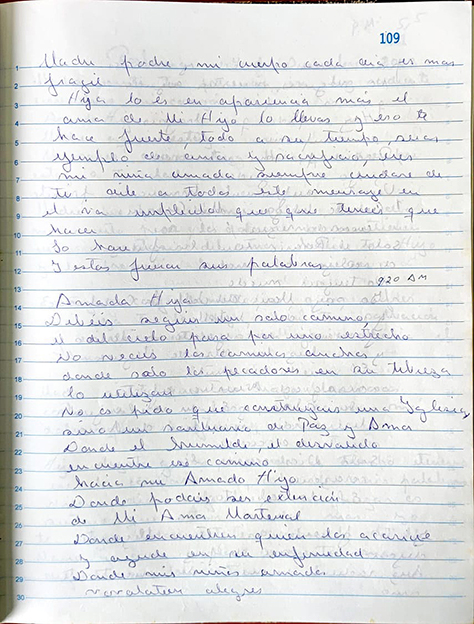 109
Madre padre mi cuerpo cada dia es mas
fragil
Hija lo es en apariencia más el
amor de Mi Hijo lo llevas y eso te
hace fuerte, todo a su tiempo seras
ejemplo de amor y sacrificio eres
mi niña amada siempre cuidare de
ti dile a todos este mensaje en
el va implicito que que tienen que
hacer
Lo hare
Y estas fueron sus palabras
920 AM
Amada Hija
Debéis seguir un solo camino,
el del cielo pasa por uno estrecho
No veais los caminos anchos
donde solo los pecadores en su tibieza
lo utilizan
No os pido que construyais una Iglesia,
sino un santuario de Paz y Amor
Donde el humilde, el desvalido
encuentre ese camino
hacia mi Amado Hijo
Donde podais ser extencion
de Mi Amor Maternal
Donde encuentren quien los acaricie
Y ayude en su enfermedad
Donde mis niños amados
alegres